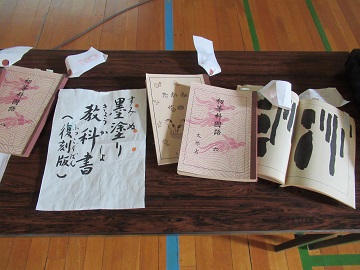 初等科國語
すみ ぬ
墨塗り
きょうかしょ
教科書
ふっこくばん
（復刻版）
初等科國語 六
文部省